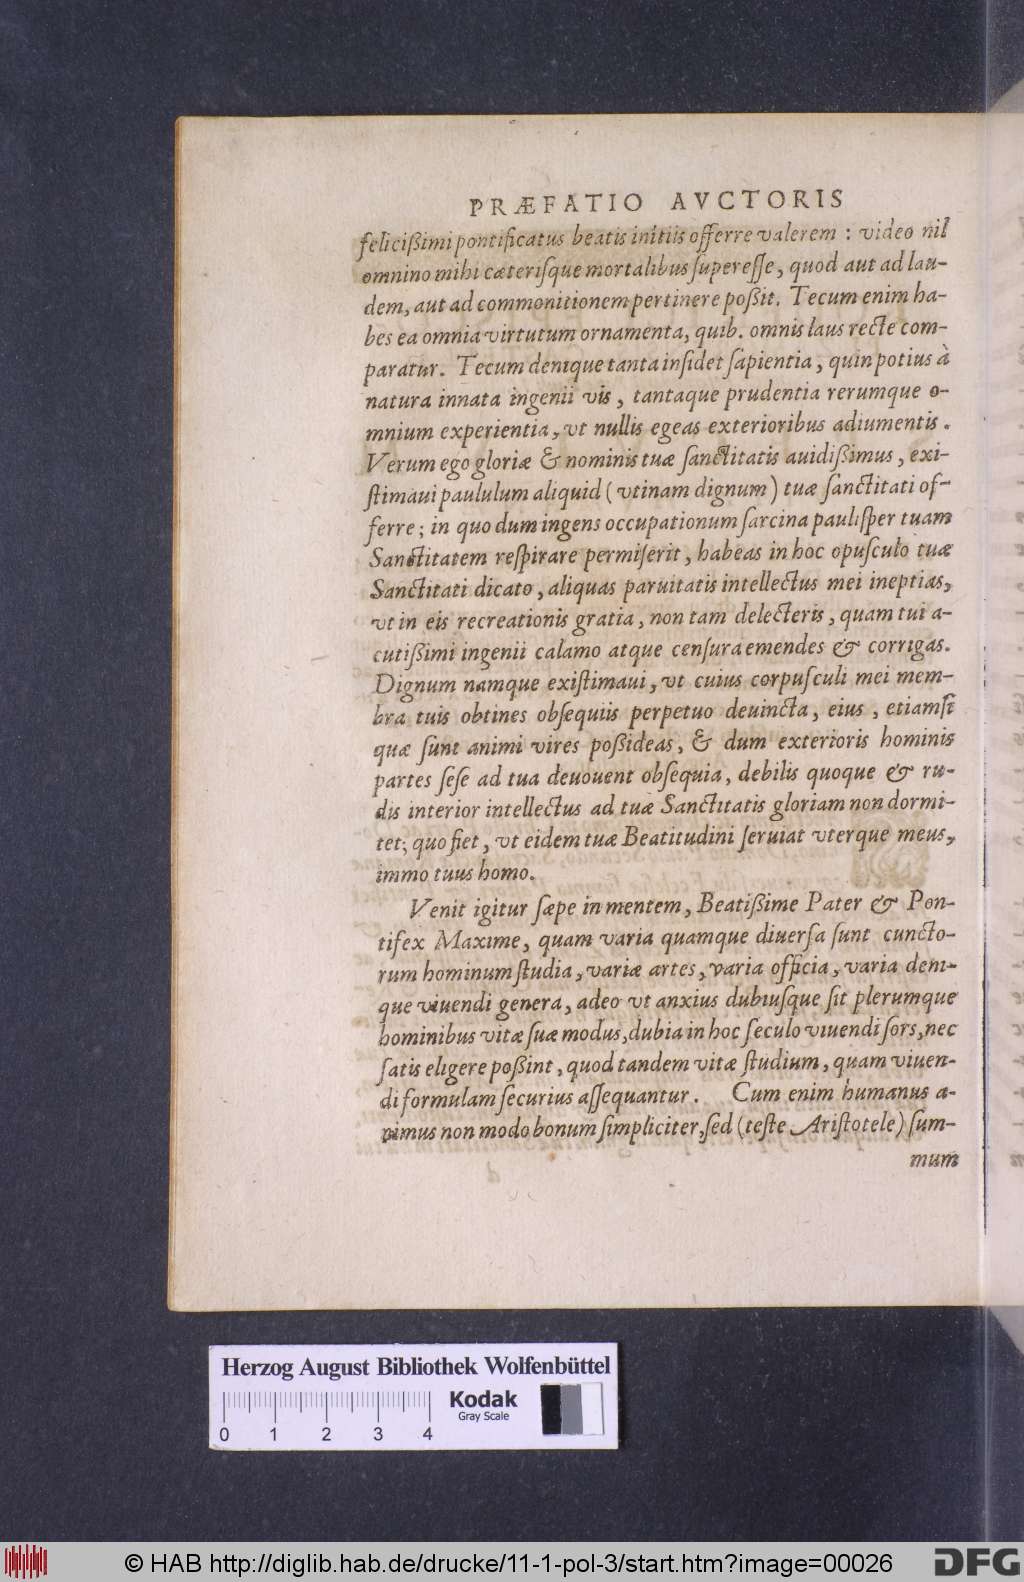 PRÆFATIO AVCTORIS
felicißimi pontificatus beatis initiis offerre valerem : video nil
omnino mihi cæterisque mortalibus superesse, quod aut ad lau-
dem, aut ad commonitionem pertinere poßit. Tecum enim ha-
bes ea omnia virtutum ornamenta, quib. omnis laus recte com-
paratur. Tecum denique tanta insidet sapientia, quin potius à
natura innata ingenii vis, tantaque prudentia rerumque o-
mnium experientia, vt nullis egeas exterioribus adiumentis.
Verum ego gloriæ & nominis tuæ sanctitatis auidißimus, exi-
stimaui paululum aliquid (vtinam dignum) tuæ sanctitati of-
ferre; in quo dum ingens occupationum sarcina paulisper tuam
Sanctitatem respirare permiserit, habeas in hoc opusculo tuæ
Sanctitati dicato, aliquas paruitatis intellectus mei ineptias,
vt in eis recreationis gratia, non tam delecteris, quam tui a-
cutißimi ingenii calamo atque censura emendes & corrigas.
Dignum namque existimaui, vt cuius corpusculi mei mem-
bra tuis obtines obsequiis perpetuo deuincta, eius, etiamsi
quæ sunt animi vires poßideas, & dum exterioris hominis
partes sese ad tua deuouent obsequia, debilis quoque & ru-
dis interior intellectus ad tuæ Sanctitatis gloriam non dormi-
tet; quo fiet, vt eidem tuæ Beatitudini seruiat vterque meus,
immo tuus homo.
Venit igitur sæpe in mentem, Beatißime Pater & Pon-
tifex Maxime, quam varia quamque diuersa sunt cuncto-
rum hominum studia, variæ artes, varia officia, varia deni-
que viuendi genera, adeo vt anxius dubiusque sit plerumque
hominibus vitæ suæ modus, dubia in hoc seculo viuendi sors, nec
satis eligere poßint, quod tandem vitæ studium, quam viuen-
di formulam securius assequantur. Cum enim humanus a-
nimus non modo bonum simpliciter, sed (teste Aristotele) sum-
mum
Herzog August Bibliothek Wolfenbüttel
Kodak
Gray Scale
0 1 2 3 4
© HAB http://diglib.hab.de/drucke/11-1-pol-3/start.htm?image=00026
DFG